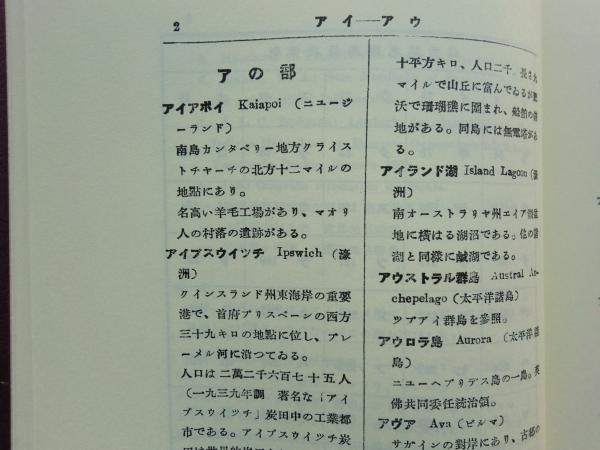 2
アイ──アウ
アの部
アイアポイ Kaiapoi (ニュージ
ーランド)
南島カンタベリー地方クライス
トチャーチの北方十二マイルの
地點にあり。
名高い羊毛工場があり、マオリ
人の村落の遺跡がある。
アイプスウイツチ Ipswich (濠
洲)
クインスランド州東海岸の重要
港で、首府ブリスベーンの西方
三十九キロの地點に位し、ブレ
ーメル河に沿つてゐる。
人口は二萬二千六百七十五人
(一九三九年調 著名な「アイ
プスウイツチ」炭田中の工業都
市である。アイプスウイツチ炭
十平方キロ、人口二千、長さ九
マイルで山丘に富んでゐるが肥
沃で珊瑚礁に圍まれ、船舶の碇
地がある。同島には無電塔があ
る。
アイランド湖 Island Lagoon (濠
洲)
南オーストラリヤ州エイア湖盆
地に横はる湖沼である。他の諸
湖と同樣に鹹湖である。
アウストラル群島 Austral Ar-
chepelago (太平洋諸島)
ツブアイ群島を參照。
アウロラ島 Aurora (太平洋諸
島)
ニューヘブリデス島の一島。英
佛共同委任統治領。
アヴア Ava (ビルマ)
サガインの對岸にあり、古都の